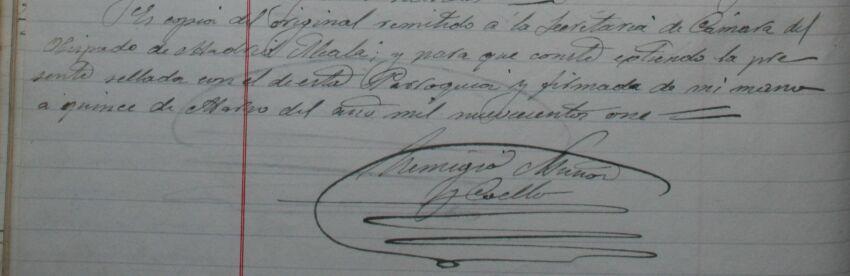 Es copia del original remitido á la Secretaría de Cámara del
Obispado de Madrid Alcalá; y para que conste extiendo la pre
sente sellada con el de esta Parroquia y firmada de mi mano
a quince de Marzo del año mil nuevecientos once
Remigio Muñoz
y Coello